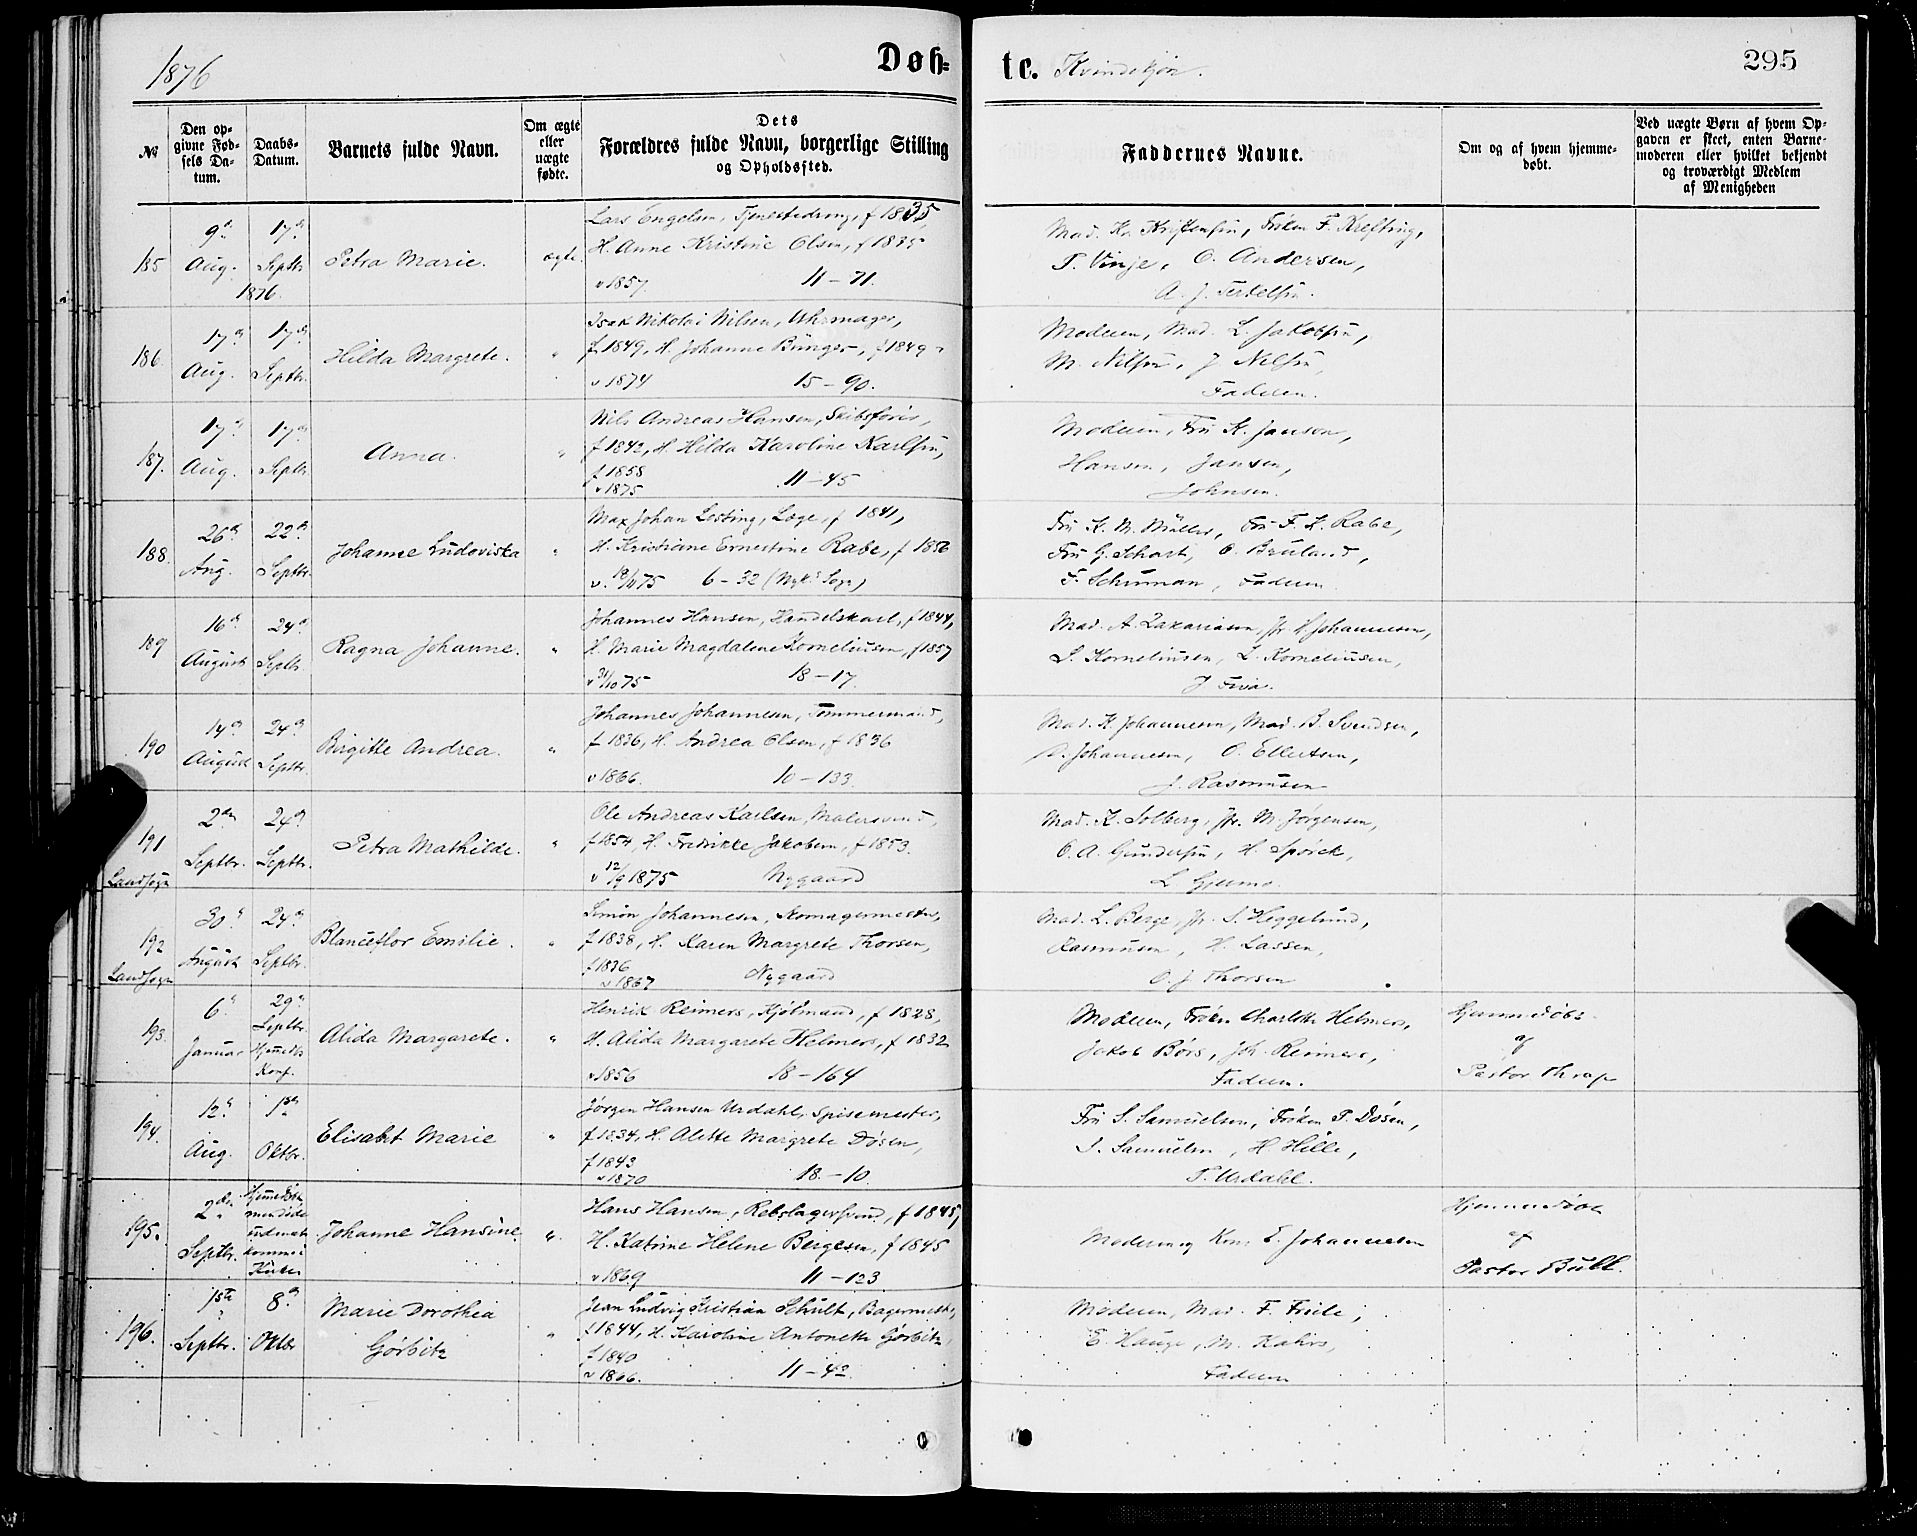 1876
Døb-
te. Kvindekjøn.
295
№
Den op-
givne Fød-
sels Da-
tum.
Daabs-
Datum.
Barnets fulde Navn.
Om ægte
eller
uægte
fødte.
Dets
Forældres fulde Navn, borgerlige Stilling
og Opholdssted.
Faddernes Navne.
Om og af hvem hjemme-
døbt.
Ved uægte Børn af hvem Op-
gaven er skeet, enten Barne-
moderen eller hvilket bekjendt
og troværdigt Medlem
af Menigheden
185
9de Aug.
17de Septbr 1876.
Petra Marie.
ægte.
Lars Engelsen, Tjenestedreng, f 1835,
H. Anne Kristine Olsen, f 1835
v 1857. 11 – 71.
Mad. Kristensen, Frøken F. Krefting,
T. Vinje, O. Andersen,
A. J. Terkelsen.
186.
17de Aug.
17de Septbr.
Hilda Margrete.
"
Isak Nikolai Nilsen, Uhrmager,
f 1849, H. Johanne Bünger, f 1849
v 1874 15 – 90.
Moderen, Mad. L. Jakobsen,
M. Nilsen, J Nilsen,
Faderen.
187.
17de Aug.
17de Septbr
Anna.
"
Nils Andreas Hansen, Skibsfører,
f 1842, H. Hilda Karoline Karlsen,
f 1858
v 1875 11 – 45
Moderen, Fru K. Janson,
Hansen, Jansen,
Johnsen.
188.
26de Aug.
22de Septbr.
Johanne Ludoviska
"
Max Johan Losting, Læge, f 1841,
H. Kristiane Ernestine Rabe, f 1856
v. 75 6 – 32 (Nyk. Sogn)
Fru K. M. Müller, Fru F. K. Rabe,
Fru G. Schart, O. Bruland,
F. Schuman, Faderen
189
16de August
24de Septbr.
Ragna Johanne.
"
Johannes Hansen, Handelskarl, f 1844,
H. Marie Magdalene Korneliussen, f 1857
v 31/10 75 18 – 17.
Mad. A. Zakariasen, Jfr Johannesen,
S. Korneliussen, L. Korneliussen,
190
14de August
24de Septbr.
Birgitte Andrea.
"
Johannes Johannesen, Tømmermand,
f 1836, H. Andrea Olsen, f 1836
v 1866. 10 – 133
Mad. K. Johannesen, Mad. B. Svendsen,
Johannesen, O. Ellertsen,
J. Rasmussen
191
Landsogn
2den Septbr.
24de Septbr.
Petra Mathilde.
"
Ole Andreas Karlsen, Malersvend,
f 1854, H. Fredrikke Jakobsen, f 1853
v 12/9 1875 Nygaard
Mad. K. Solberg, Jfr. M. Jørgensen,
O. A. Gundersen, H. Spörck,
L. Gjerno.
192
Landsogn
30de August
24de Septbr.
Blanceflor Emilie.
"
Simon Johannesen, Skomagermester,
f 1838, H. Karen Margrete Thorsen,
f 1836
v 1867 Nygaard
Mad. L. Berge, Jfr. S. Heggelund,
Rasmussen, H. Lassen,
O. J. Thorsen
193.
6te Januar
29de Septbr. Hjemdbs Konf.
Alida Margarete.
"
Henrik Reimers, Kjølmand, f 1828,
H. Alida Margarete Helmers, f 1832
v 1856 18 – 164
Moderen, Frøken Charlotte Helmers,
Jakob Børs, Joh. Reimers,
Faderen.
Hjemmedøbt
af
Pastor Thrap
194.
12te Aug.
1ste Oktbr.
Elisabet Marie
"
Jørgen Hansen Urdahl, Spisemester,
f 1834, H. Alette Margrete Døsen,
f 1843
v 1870 18. – 10.
Fru S. Samuelsen, Frøken P. Døsen,
S. Samuelsen, H. Hille,
T. Urdahl.
195.
2den Septbr.
Hjemmedøbt men døde uden at komme i Kirke
Johanne Hansine
"
Hans Hansen, Rebslagersvend, f 1845,
H. Katrine Helene Bergesen, f 1845
v 1869 11 – 123
Moderen og Kone E. Johannesen
Hjemmedøbt
af
Pastor Bull.
196.
1ste Septbr.
8de Oktbr
Marie Dorothea
Gørbitz
"
Jean Ludvig Kristian Schult, Bagermester,
f 1844, H. Karoline Antonette Gørbitz,
f 1840
v 1866. 11 – 42
Moderen, Mad. F. Friele,
E. Hauge, M. Kahrs,
Faderen